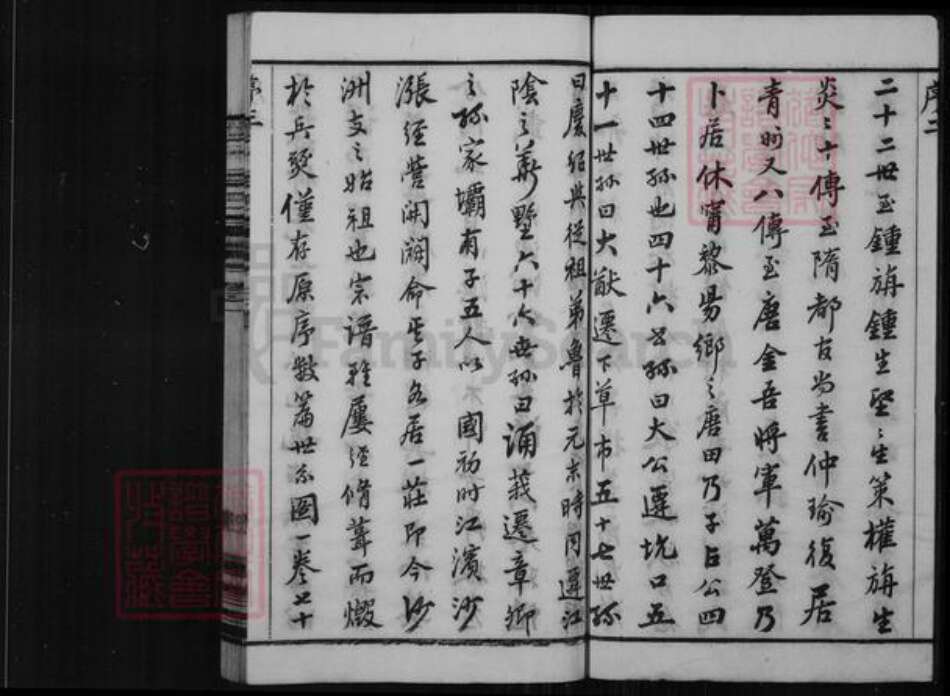 序二
二十二世至鍾旃鍾生堅〻生策權旃生
炎〻十傳至隋都官尚書仲瑜復居
青州又八傳至唐金吾將軍萬登乃
卜居休甯黎陽鄉之唐田乃子占公四
十四世孫也四十六世孫曰大公遷坑口五
十一世孫曰大猷遷下草市五十七世孫
曰慶紹與從祖弟魯於元末時同遷江
陰之華墅六十六世孫曰誦莪遷章卿
之孫家壩有子五人以國初時江濱沙
漲經營開闢命其子各居一莊即今沙
洲支之始祖也宗譜雖屢經脩葺而燬
於兵燹僅存原序數篇世系圖一卷七十
序三
FamilySearch